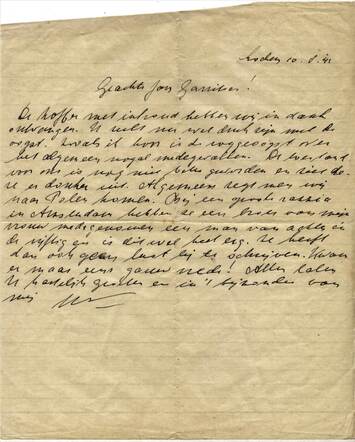 10.8.42
Geachte Jan Garritsen!
De koffer met inhoud hebben wij in dank
ontvangen. U zult nu wel druk zijn met de
oogst. Zooals ik hoor is de roggeoogst over
het algemeen nogal meegevallen. De toestand
voor ons is nog niet beter geworden en ziet de-
ze er donker uit. Algemeen zegt men wij
naar Polen komen. Bij een groote razzia
in Amsterdam hebben ze een broer van mijn
vrouw medegenomen een man van achter in
de vijftig en is dit wel heel erg. Ze heeft
dan ook geen lust bij te schrijven. Kwam
er maar eens gauw vrede! Allen laten
U hartelijk groeten en in 't bijzonder van
mij